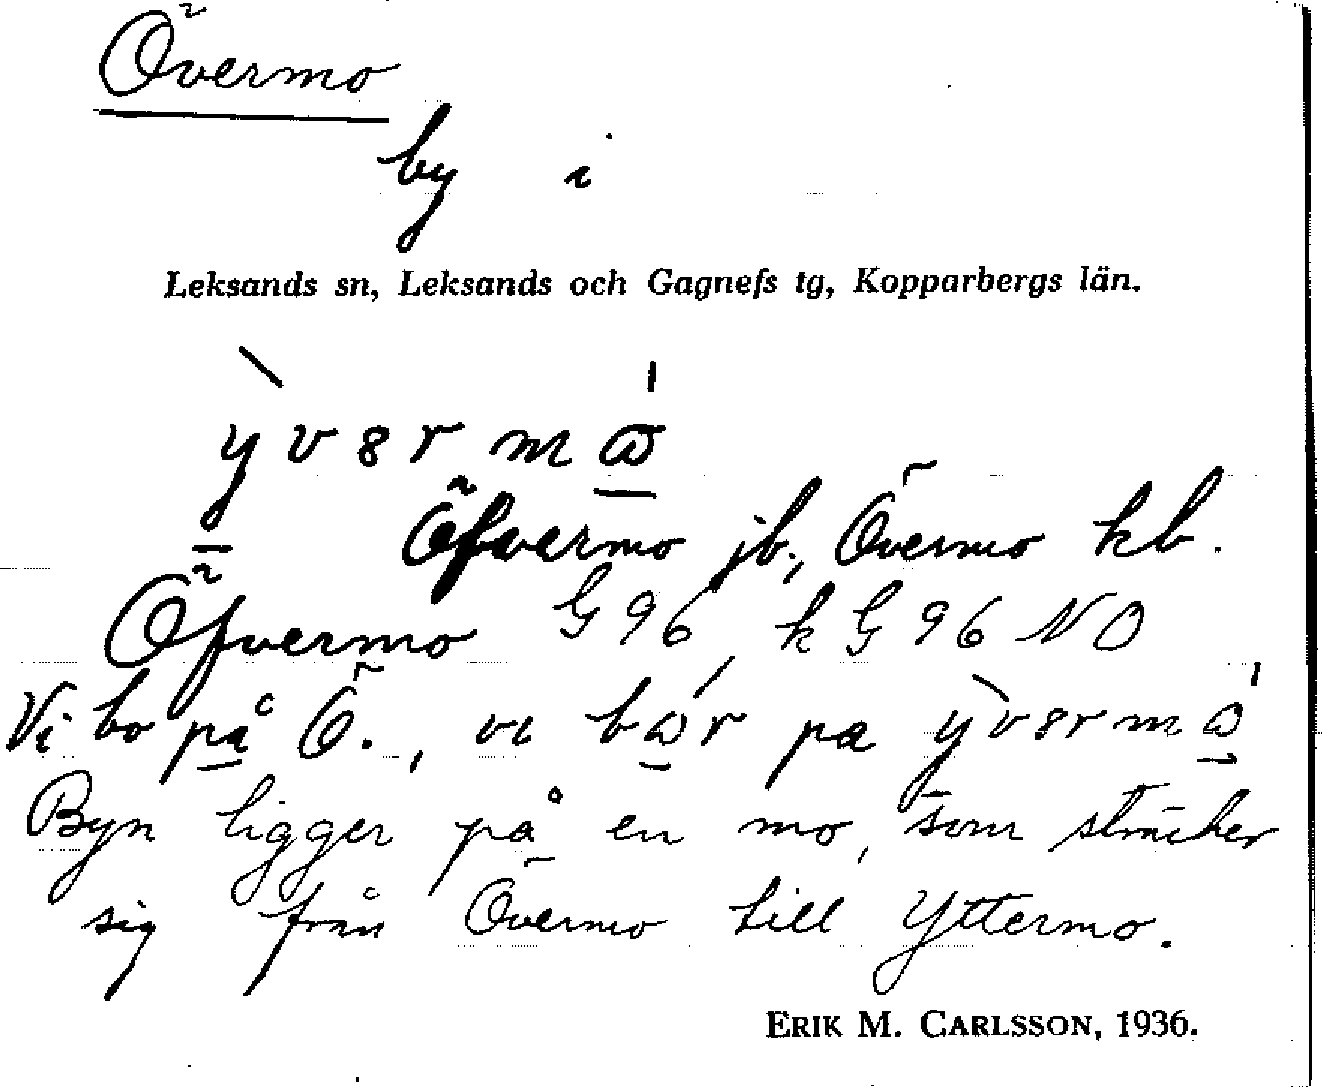 Övermo
by i
Leksands sn, Leksands och Gagnefs tg, Kopparbergs län.
Öfvermo jb., Övermo kb.
Öfvermo G 96, k G 96 NO
Vi bo på Ö., vi
Byn ligger på en mo, som sträcker
sig från Övermo till Yttermo.
ERIK M. CARLSSON, 1936.